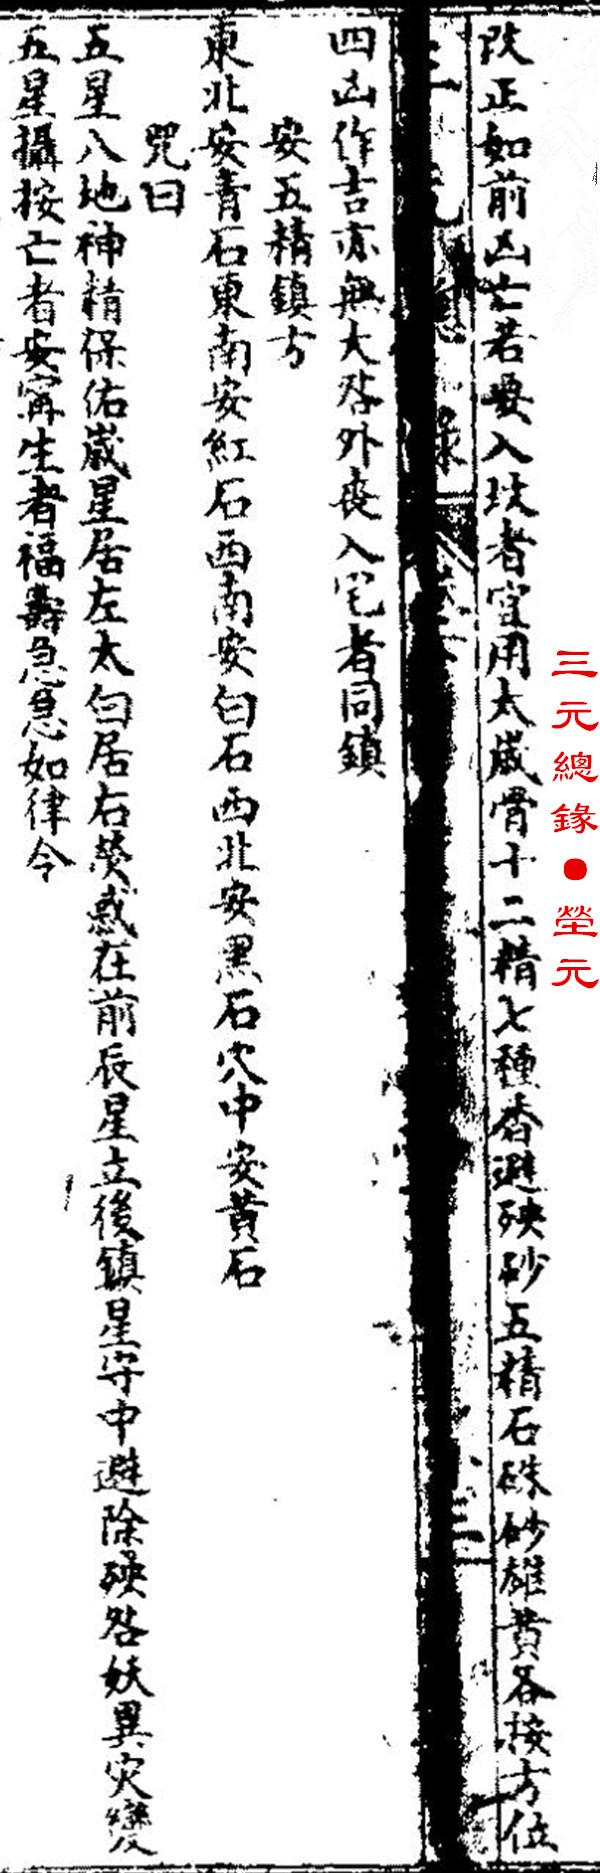 三元總錄●塋元
改正如前凶亡若要入坟者宜用太歲骨十二精七種香避殃砂五精石硃砂雄黃各按方位
四凶作吉亦無大咎外喪入宅者同鎮
安五精鎮方
東北安青石東南安紅石西南安白石西北安黑石穴中安黃石
咒曰
五星八地神精保佑歲星居左太白居右熒惑在前辰星立後鎮星守中避除殃咎妖異灾變
五星攝按亡者安寧生者福壽急急如律令